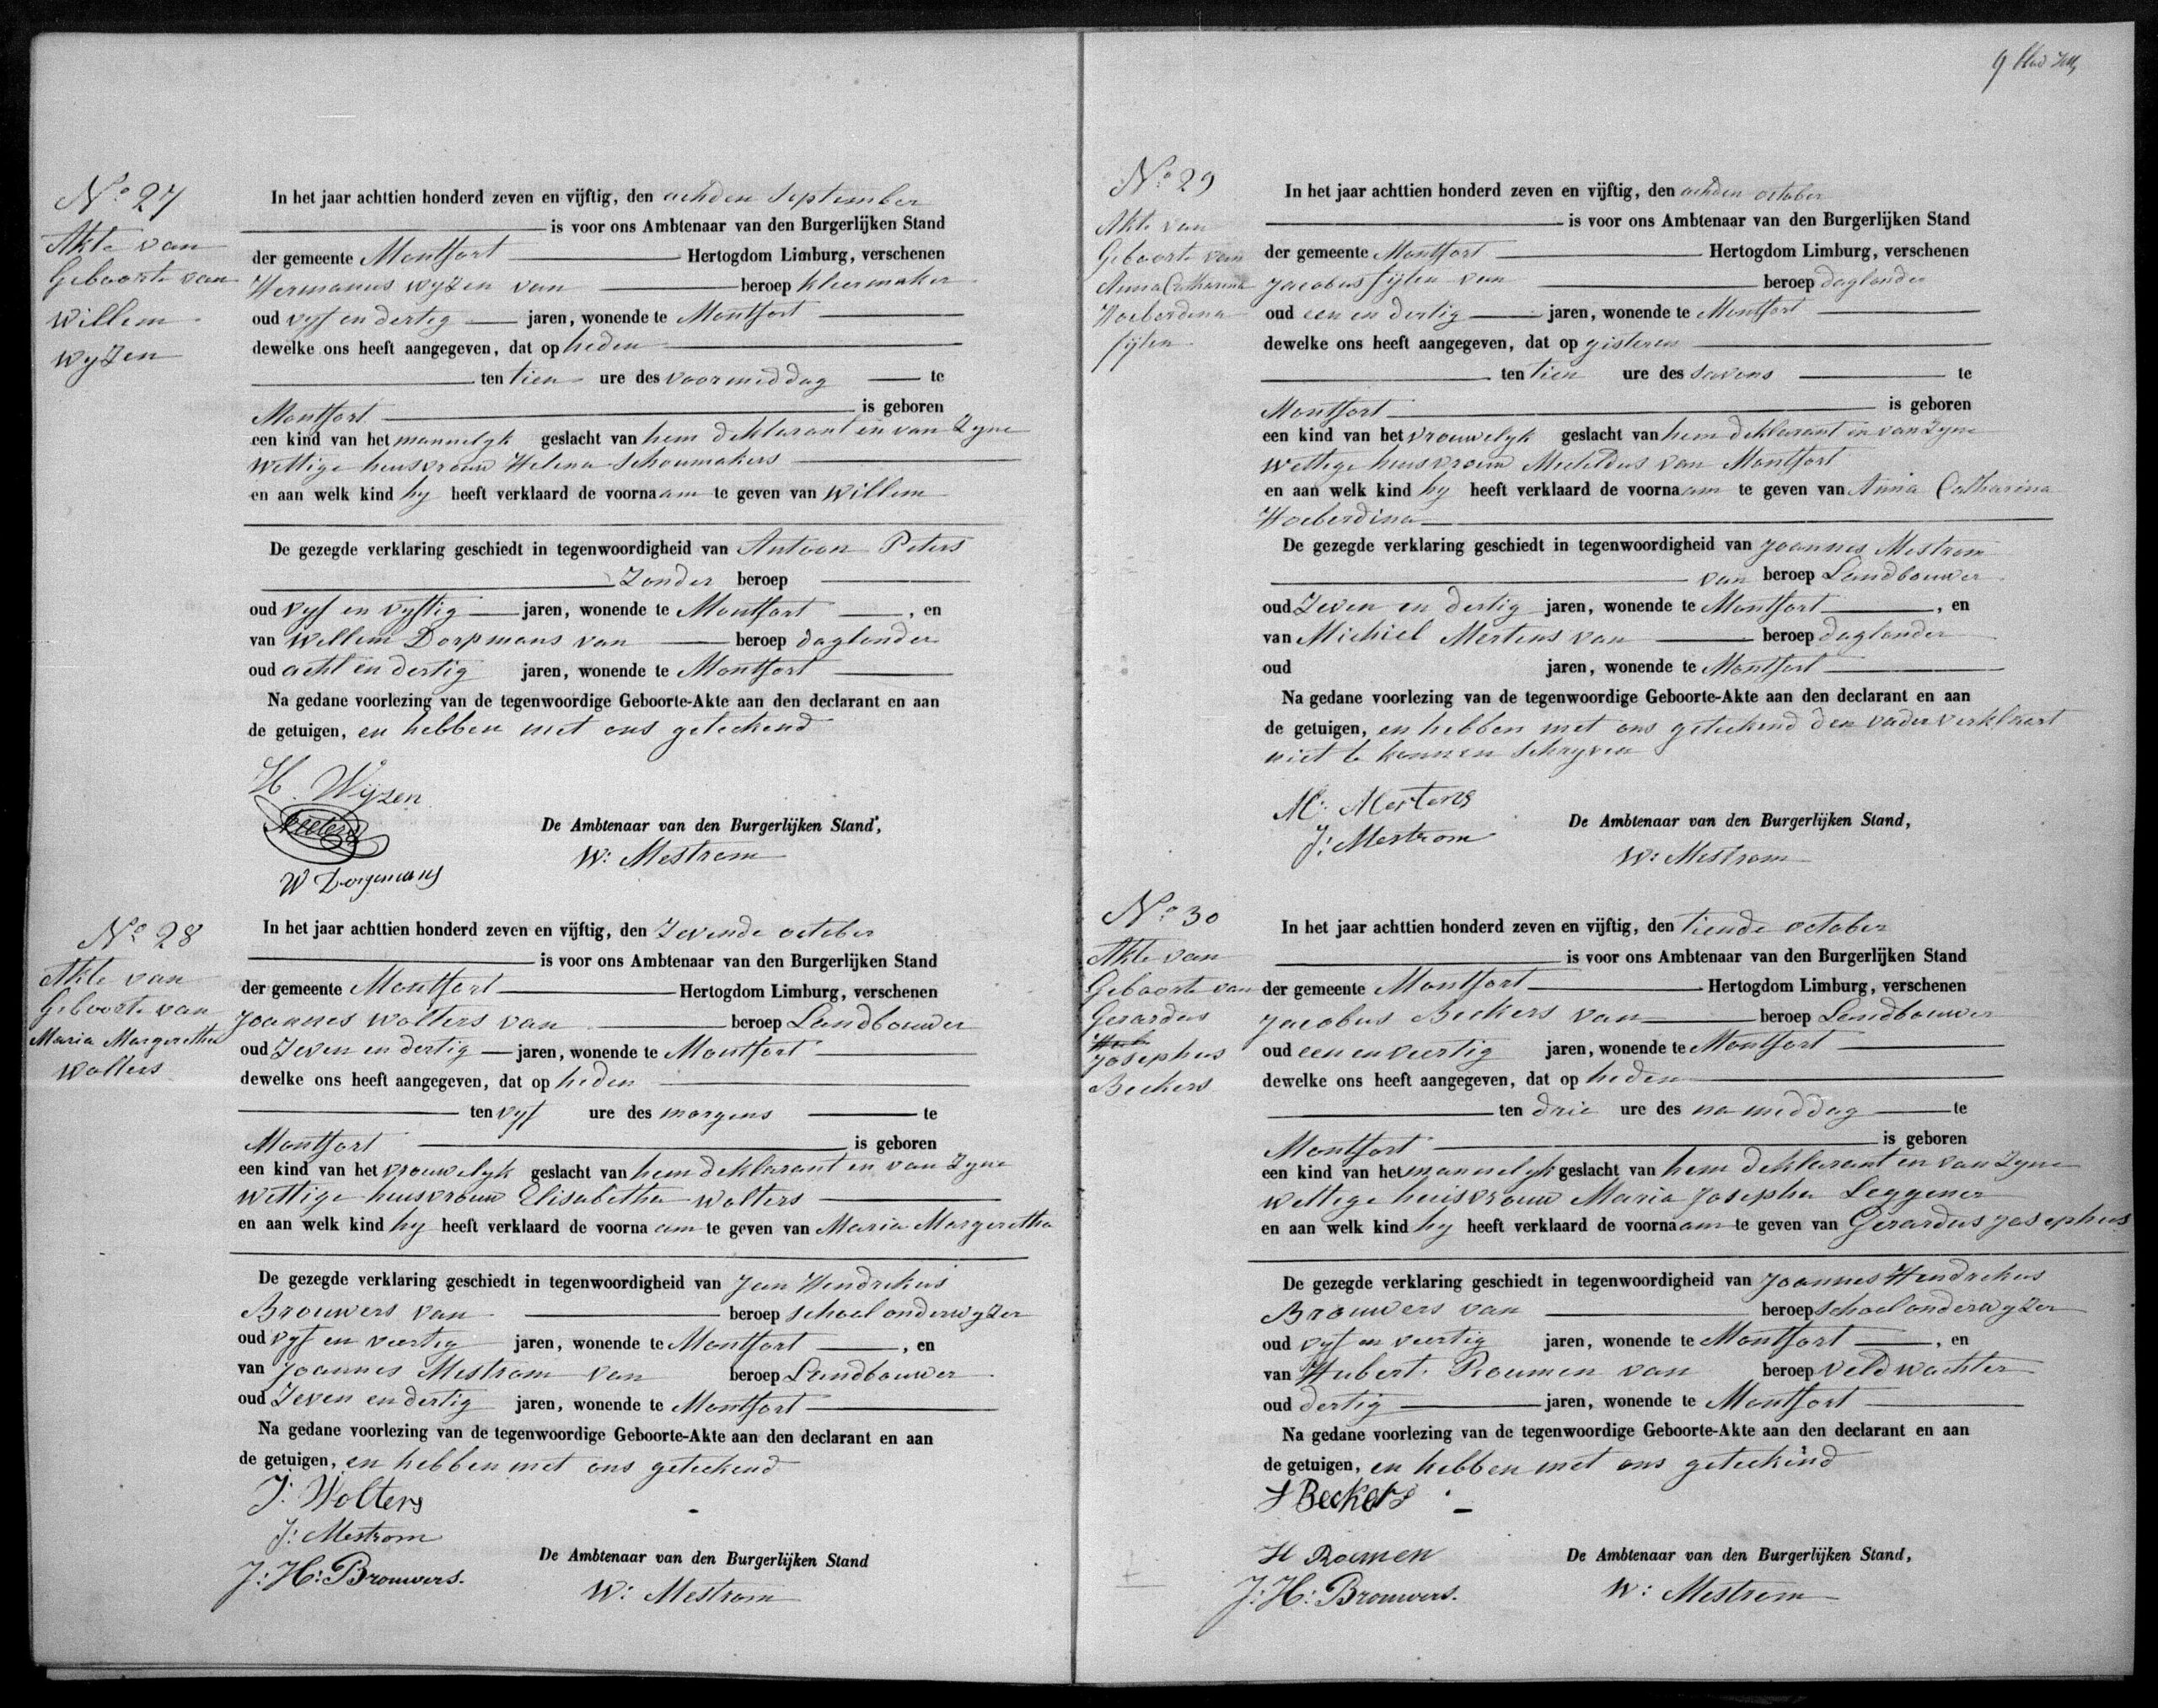 No 27
Akte van
Geboorte van
Willem
Wyzen
In het jaar achttien honderd zeven en vijftig, den achden September
is voor ons Ambtenaar van den Burgerlijken Stand
der gemeente Montfort Hertogdom Limburg, verschenen
Hermanus Wyzen van beroep kleermaker
oud vyf en dertig jaren, wonende te Montfort
dewelke ons heeft aangegeven, dat op heden
ten tien ure des voormeddag te
Montfort is geboren
een kind van het mannelyk geslacht van hem deklarant en van Zyne
Wettige huisvrouw Helena Schoumakers
en aan welk kind hy heeft verklaard de voornaam te geven van Willem
De gezegde verklaring geschiedt in tegenwoordigheid van Antoon Peters
Zonder beroep
oud vyf en vyftig jaren, wonende te Montfort, en
van Willem Dorpmans van beroep daglonder
oud acht en dertig jaren, wonende te Montfort
Na gedane voorlezing van de tegenwoordige Geboorte-Akte aan den declarant en aan
de getuigen, en hebben met ons geteekend
H. Wijzen
APeters
W Dorpmans
De Ambtenaar van den Burgerlijken Stand,
W: Mestrom
No 28
Akte van
Geboorte van
Maria Margeretha
Wolters
In het jaar achttien honderd zeven en vijftig, den Zevende october
is voor ons Ambtenaar van den Burgerlijken Stand
der gemeente Montfort Hertogdom Limburg, verschenen
Joannes Wolters van beroep Landbouwer
oud Zeven en dertig jaren, wonende te Montfort
dewelke ons heeft aangegeven, dat op heden
ten vyf ure des morgens te
Montfort is geboren
een kind van het vrouwelyk geslacht van hem deklarant en van Zyne
Wettige huisvrouw Elisabetha Wolters
en aan welk kind hy heeft verklaard de voornaam te geven van Maria Margeretha
De gezegde verklaring geschiedt in tegenwoordigheid van Jan Hendrikus
Brouwers van beroep Schoolonderwyzer
oud vyf en veertig jaren, wonende te Montfort, en
van Joannes Mestrom van beroep Landbouwer
oud Zeven en dertig jaren, wonende te Montfort
Na gedane voorlezing van de tegenwoordige Geboorte-Akte aan den declarant en aan
de getuigen, en hebben met ons geteekend
J. Wolters
J: Mestrom
J: H: Brouwers.
De Ambtenaar van den Burgerlijken Stand
W: Mestrom
9
No 29
Akte van
Geboorte van
Anna Catharina
Hoeberdina
Sijlen
In het jaar achttien honderd zeven en vijftig, den achden october
is voor ons Ambtenaar van den Burgerlijken Stand
der gemeente Montfort Hertogdom Limburg, verschenen
Jacobus Sijlen van beroep daglonder
oud een en dertig jaren, wonende te Montfort
dewelke ons heeft aangegeven, dat op gisteren
ten tien ure des savens te
Montfort is geboren
een kind van het vrouwelyk geslacht van hem deklarant en van Zyne
Wettige huisvrouw van Montfort
en aan welk kind hy heeft verklaard de voornaam te geven van Anna Catharina
Hoeberdina
De gezegde verklaring geschiedt in tegenwoordigheid van Joannes Mestrom
van beroep Landbouwer
oud Zeven en dertig jaren, wonende te Montfort, en
van Michiel Mertens van beroep daglonder
oud jaren, wonende te Montfort
Na gedane voorlezing van de tegenwoordige Geboorte-Akte aan den declarant en aan
de getuigen, en hebben met ons geteekend den vader verklaart
niet te konnen Schryven
M: Mertens
J: Mestrom
De Ambtenaar van den Burgerlijken Stand,
W: Mestrom
No 30
Akte van
Geboorte van
Gerardus
Josephus
Beckers
In het jaar achttien honderd zeven en vijftig, den tiende october
is voor ons Ambtenaar van den Burgerlijken Stand
der gemeente Montfort Hertogdom Limburg, verschenen
Jacobus Beckers van beroep Landbouwer
oud een en veertig jaren, wonende te Montfort
dewelke ons heeft aangegeven, dat op heden
ten drie ure des na meddag te
Montfort is geboren
een kind van het mannelyk geslacht van hem deklarant en van Zyne
Wettege huisvrouw Maria Josepha Leggener
en aan welk kind hy heeft verklaard de voornaam te geven van Gerardus Josephus
De gezegde verklaring geschiedt in tegenwoordigheid van Joannes Hendrikus
Brouwers van beroep Schoolonderwyzer
oud vyf en veertig jaren, wonende te Montfort, en
van Hubert Roumen van beroep veldwachter
oud dertig jaren, wonende te Montfort
Na gedane voorlezing van de tegenwoordige Geboorte-Akte aan den declarant en aan
de getuigen, en hebben met ons geteekend
J Beckers
H Roemen
J: H: Brouwers.
De Ambtenaar van den Burgerlijken Stand,
W: Mestrom